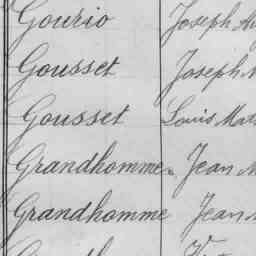 Gourio Joseph
Gousset Joseph
Gousset Louis
Grandhomme Jean
Grandhomme Jean